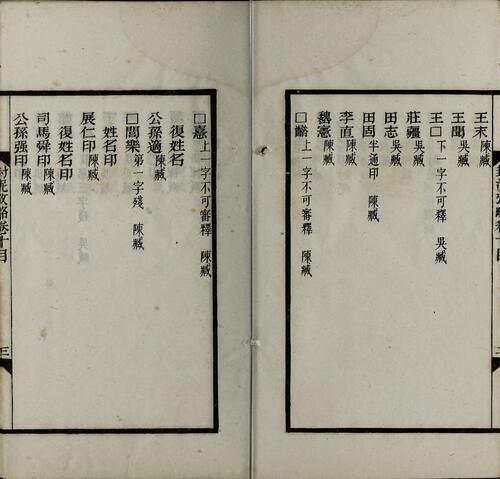 王末陳臧
王閒吳臧
王□下一字不可審釋 吳臧
莊疆吳臧
田志吳臧
田固半通印 陳臧
李直陳臧
魏憲陳臧
上一字不可審釋 陳臧
□憙上一字不可審釋 陳臧
復姓名
公孫適陳臧
□閭樂第一字殘 陳臧
姓名印
展仁印陳臧
復姓名印
司馬舜印陳臧
公孫强印陳臧
封泥攷略卷十目
三